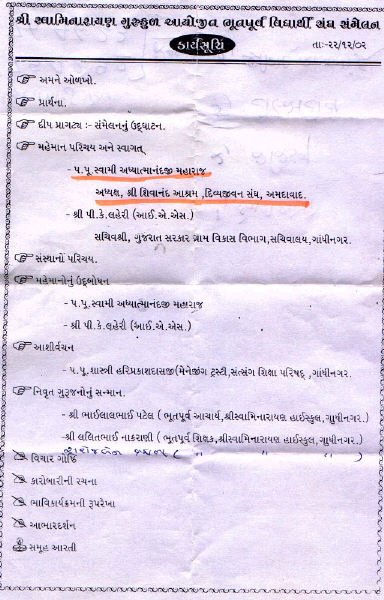 શ્રી સ્વામિનારાયણ ગુરુકુળ આયોજીત ભૂતપૂર્વ વિદ્યાર્થી સંઘ સંમેલન
કાર્યસૂચિ
તાઃ-૨૨/૧૨/૦૨
અમને ઓળખો.
પ્રાર્થના.
દીપ પ્રાગટ્ય :- સંમેલનનું ઉદ્‌ઘાટન.
મહેમાન પરિચય અને સ્વાગત
- પ.પૂ.સ્વામી અધ્યાત્માનંદજી મહારાજ
અધ્યક્ષ, શ્રી શિવાનંદ આશ્રમ ,દિવ્યજીવન સંઘ, અમદાવાદ.
- શ્રી પી.કે.લહેરી (આઈ.એ.એસ.)
સચિવશ્રી, ગુજરાત સરકાર ગ્રામ વિકાસ વિભાગ,સચિવાલય,ગાંધીનગર.
સંસ્થાનો પરિચય.
મહેમાનોનું ઉદ્‌બોધન
- પ.પૂ.સ્વામી અધ્યાત્માનંદજી મહારાજ
- શ્રી પી.કે.લહેરી (આઈ.એ.એસ.)
આશીર્વચન
- પ.પૂ.શાસ્ત્રી હરિપ્રકાશદાસજી(મેનેજીંગ ટ્રસ્ટી,સત્સંગ શિક્ષા પરિષદ્ ,ગાંધીનગર.
નિવૃત ગુરૂજનોનું સન્માન.
- શ્રી ભાઈલાલભાઈ પટેલ ( ભૂતપૂર્વ આચાર્ય,શ્રીસ્વામિનારાયણ હાઈસ્કુલ,ગાધીનગર.)
-શ્રી લલિતભાઈ નાકરાણી ( ભૂતપૂર્વ શિક્ષક,શ્રીસ્વામિનારાયણ હાઈસ્કુલ,ગાધીનગર.)
( " " " )
વિચાર ગોષ્ઠિ
કારોબારીની રચના
ભાવિકાર્યક્રમની રૂપરેખા
આભારદર્શન
સમૂહ આરતી